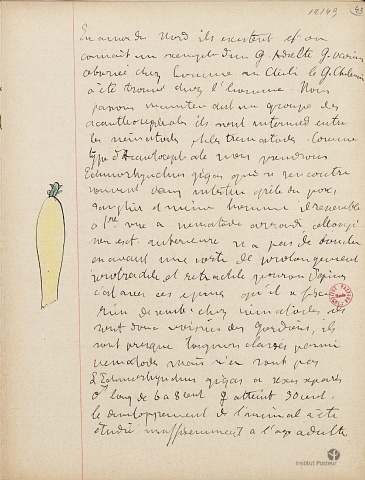 12149
En amérique du Nord ils existent et on
connait un exemple d'un G. adulte G. varius
observé chez l'homme au Chili le G. Chilensis
a été trouvé chez l'homme. Nous
passons maintenant au groupe des
acanthocéphales ils sont intermed entre
les nématodes et les trématodes. Comme
type d'Acanthocéphale nous prendrons
Echinorhynchus gigas qui se rencontre
souvent dans intestin grêle du porc,
sanglier et même homme. Il ressemble
à 1re vue à nématode arrondi allongé
son ext. antérieure n'a pas de bouche
en avant une sorte de prolongement
protractile et rétractile pourvu d'épines
c'est avec ces épines qu'il se fixe
Rien de semb. chez nématodes, ils
sont donc voisins des Gordiens, ils
sont presque toujours classés parmi
nématodes mais n'en sont pas
L'Echinorhynchus gigas a sexes séparés
♂ long de 6 a 8 cent ♀ atteint 30 cent.
le développement de l'animal a été
étudié insuffisamment a l'age adulte
Institut Pasteur